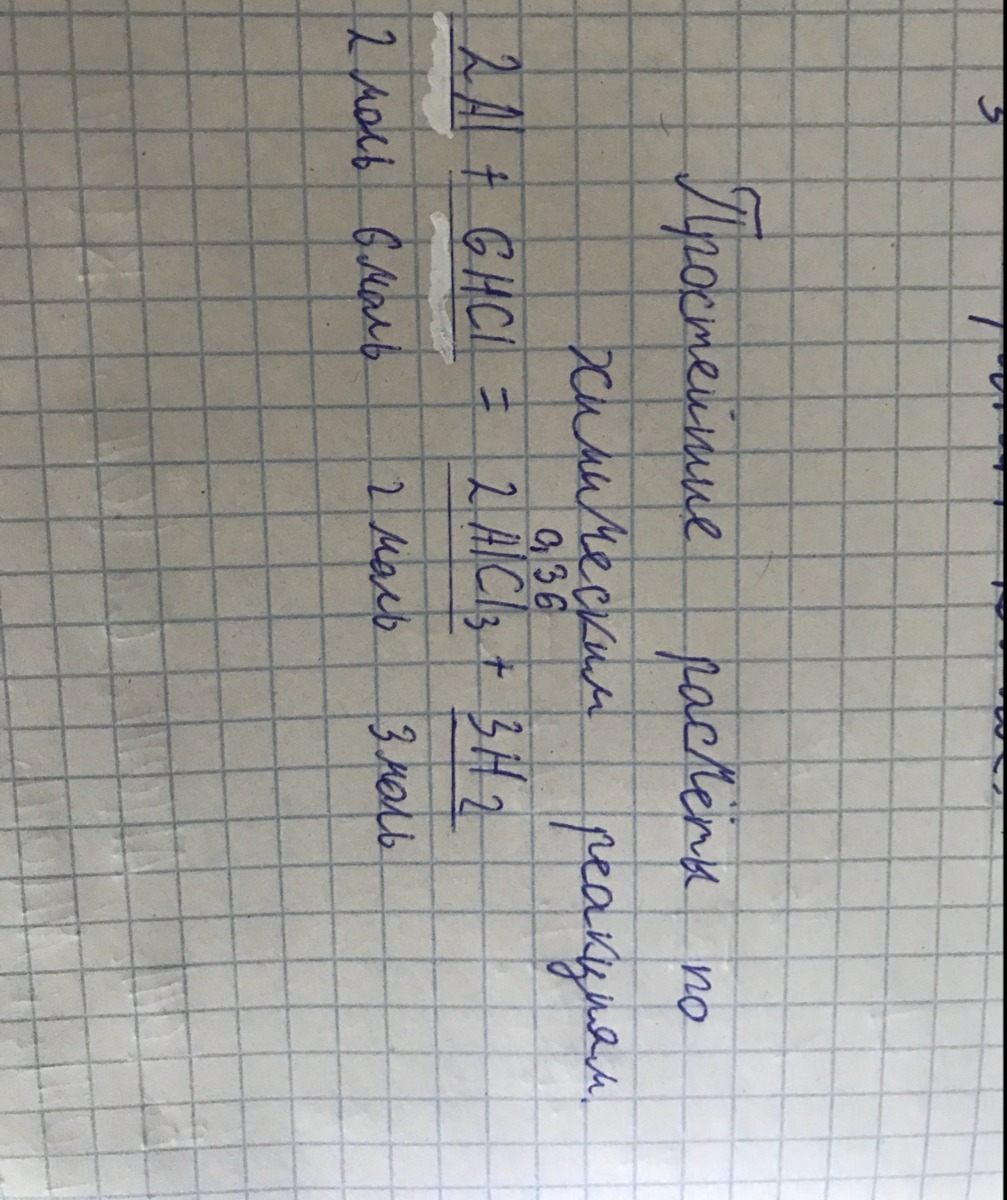 Простейшие расчёты по
химическим реакциям.
0,36
2Al + 6HCl = 2AlCl₃ + 3H2
2 моль 6 моль 2 моль 3 моль